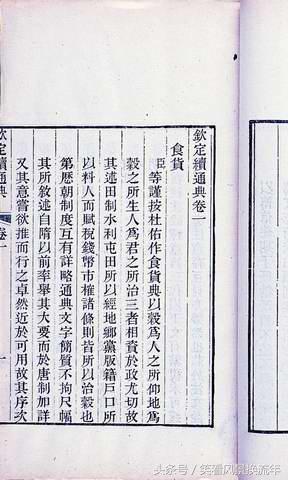 欽定續通典卷一
食貨
臣等謹按杜佑作食貨典以穀爲人之所仰地爲
穀之所生人爲君之所治三者相資於政尤切故
其述田制水利屯田所以經地鄉黨版籍戸口所
以料人而賦稅錢幣市榷諸條則皆所以治穀也
第歴朝制度互有詳略通典文字簡質不拘尺幅
其所敘述自隋以前率舉其大要而於唐制加詳
又其意嘗欲推而行之卓然近於可用故其序次
欽定續通典
卷一
一
头条号/笑看风景换流年